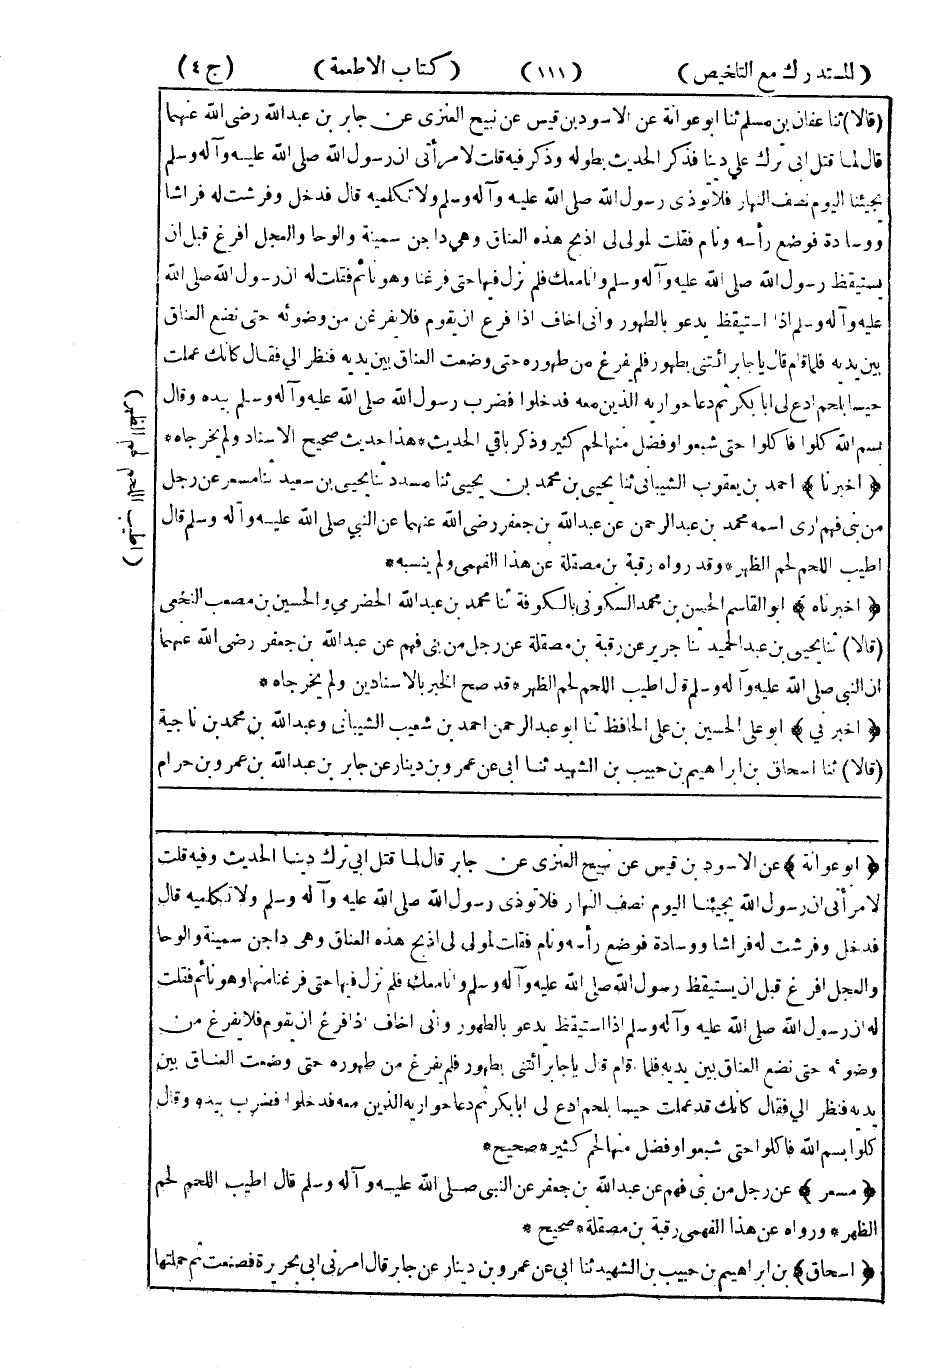 (المستدرك مع التلخيص) (١١١) (كتاب الاطعمة) (ج٤)
(قالا) ثنا عفان بن مسلم ثنا ابو عوانة عن الاسود بن قيس عن نبيح العنزى عن جابر بن عبدالله رضى الله عنهما
قال لما قتل ابى ترك علي دينا فذكر الحديث بطوله وذكر فيه قلت لامرأتى ان رسول الله صلى الله عليه وآله وسلم
يجيئنا اليوم نصف النهار فلا تؤذى رسول الله صلى الله عليه وآله وسلم ولا تكلميه قال فدخل وفرشت له فراشا
ووسادة فوضع رأسه ونام فقلت لمولى لى اذبح هذه العناق وهي داجن سمينة والوحا والعجل افرغ قبل ان
يستيقظ رسول الله صلى الله عليه وآله وسلم وانا معك فلم نزل فيها حتى فرغنا وهو نائم فقلت له ان رسول الله صلى الله
عليه وآله وسلم اذا استيقظ يدعو بالطهور وانى اخاف اذا فرغ ان يقوم فلا يفرغن من وضوئه حتى نضع العناق
بين يديه فلما قام قال يا جابر ائتنى بطهور فلم يفرغ من طهوره حتى وضعت العناق بين يديه فنظر الي فقال كانك عملت
حيسا بلحم ادع لى ابا بكر ثم دعا حواريه الذين معه فدخلوا فضرب رسول الله صلى الله عليه وآله وسلم بيده وقال
بسم الله كلوا فاكلوا حتى شبعوا وفضل منها لحم كثير وذكر باقي الحديث * هذا حديث صحيح الاسناد ولم يخرجاه *
﴿ اخبرنا ﴾ احمد بن يعقوب الشيبانى ثنا يحيى بن محمد بن يحيى ثنا مسدد ثنا يحيى بن سعيد ثنا مسعر عن رجل
من بنى فهم ارى اسمه محمد بن عبد الرحمن عن عبدالله بن جعفر رضى الله عنهما عن النبي صلى الله عليه وآله وسلم قال
اطيب اللحم لحم الظهر * وقد رواه رقبة بن مصقلة عن هذا الفهمى ولم ينسبه *
﴿ اخبرناه ﴾ ابو القاسم الحسن بن محمد السكونى بالكوفة ثنا محمد بن عبدالله الحضرمي والحسين بن مصعب النخعى
(قالا) ثنا يحيى بن عبد الحميد ثنا جرير عن رقبة بن مصقلة عن رجل من بنى فهم عن عبدالله بن جعفر رضى الله عنهما
ان النبي صلى الله عليه وآله وسلم قال اطيب اللحم لحم الظهر * قد صح الخبر بالاسنادين ولم يخرجاه *
﴿ اخبرني ﴾ ابو على الحسين بن على الحافظ ثنا ابو عبد الرحمن احمد بن شعيب الشيبانى وعبدالله بن محمد بن ناجية
(قالا) ثنا اسحاق بن ابراهيم بن حبيب بن الشهيد ثنا ابى عن عمرو بن دينار عن جابر بن عبدالله بن عمرو بن حرام
(اطيب اللحم لحم الظهر)
﴿ ابو عوانة ﴾ عن الاسود بن قيس عن نبيح العنزى عن جابر قال لما قتل ابى ترك دينا الحديث وفيه قلت
لامرأتى ان رسول الله يجيئنا اليوم نصف النهار فلا تؤذى رسول الله صلى الله عليه وآله وسلم ولا تكلميه قال
فدخل وفرشت له فراشا ووسادة فوضع رأسه ونام فقلت لمولى لى اذبح هذه العناق وهى داجن سمينة والوحا
والعجل افرغ قبل ان يستيقظ رسول الله صلى الله عليه وآله وسلم وانا معك فلم نزل فيها حتى فرغنا منها وهو نائم فقلت
له ان رسول الله صلى الله عليه وآله وسلم اذا استيقظ يدعو بالطهور وانى اخاف اذا فرغ ان يقوم فلا يفرغ من
وضوئه حتى نضع العناق بين يديه فلما قام قال يا جابر ائتنى بطهور فلم يفرغ من طهوره حتى وضعت العناق بين
يديه فنظر الي فقال كانك قد عملت حيسا بلحم ادع لى ابا بكر ثم دعا حواريه الذين معه فدخلوا فضرب بيده وقال
كلوا بسم الله فاكلوا حتى شبعوا وفضل منها لحم كثير * صحيح *
﴿ مسعر ﴾ عن رجل من بنى فهم عن عبدالله بن جعفر عن النبى صلى الله عليه وآله وسلم قال اطيب اللحم لحم
الظهر * ورواه عن هذا الفهمى رقبة بن مصقلة * صحيح *
﴿ اسحاق ﴾ بن ابراهيم بن حبيب بن الشهيد ثنا ابى عن عمرو بن دينار عن جابر قال امرنى ابى بحريرة فصنعت ثم حملتها